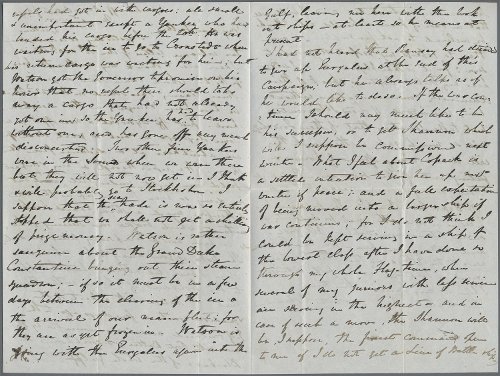 vessels had got in with cargoes; all small
& unimportant except a Yankee who had
landed his cargo before the took He was
waiting for the ice to go to Cronstadt where
his return cargo was waiting for him; but
Watson got the Governor to promise on his
honor that no vessel there should take
away a cargo that had not already
got one in; so the Yankee has had to leave
without one; and has gone off very much
disconcerted. Two other fine Yankees
were in the Sound when we came there
but they will not now get in I think
& will probably go to Stockholm. I
suppose that the trade is now so entirely
stopped that we shall not get a shilling
of prize money. Watson is rather
sanguine about the Grand Duke
Constantine bringing out their steam
squadron; if so it must be in a few
days between the clearing of the ice &
the arrival of our main fleet; for
they are as yet frozen in. Watson is
going with the Euryalus again into the
Gulf, leaving me here with the look
out ships at least so he means at
present
I had not heard that Ramsay had desired
to give up Euryalus at the end of this
Campaign; but he always talks as if
he would like to do so. If the war con-
tinues I should very much like to be
his successor, or to get Shannon which
will I suppose be Commissioned next
winter. What I feel about Cossack is
a settled intention to give her up next
winter if peace; and a full expectation
of being moved into a larger ship if
war continues; for I do not think I
could be kept serving in a ship of
the lowest class after I have done so
through my whole Flag-time, when
several of my juniors with less service
are serving in the highest and in
case of such a move, the Shannon will
be I suppose, the finest command given
to me if I do not get a Line of Battle ship